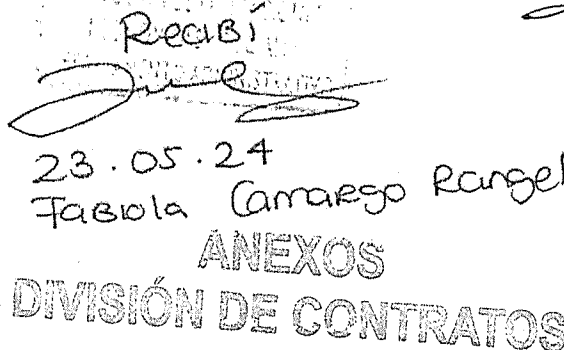 Recibí
23.05.24
Fabiola Camargo Rangel
ANEXOS
DIVISIÓN DE CONTRATOS